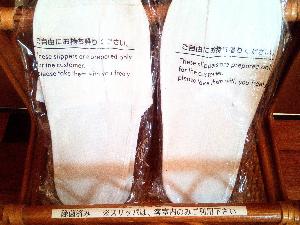 ご自由にお持ち帰りください。
These slippers are prepared only
for the customer.
please take them with you freely.
ご自由にお持ち帰りください。
These slippers are prepared only
for the customer.
please take them with you freely.
除菌済み ※スリッパは、客室内のみご利用下さい